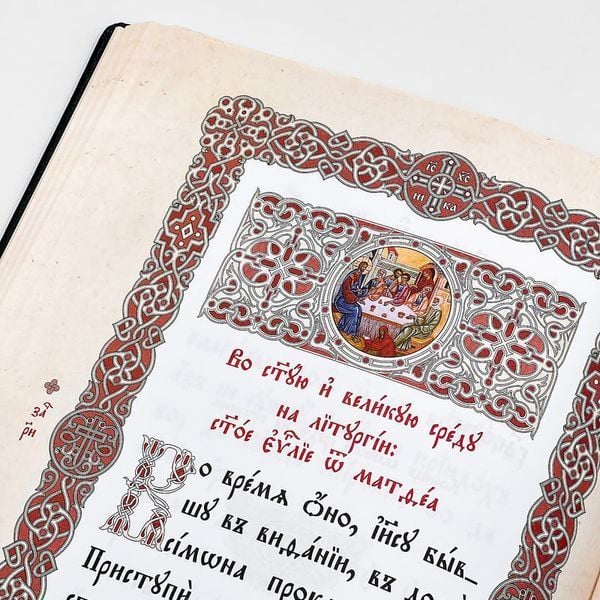 І҃С Х҃С
НИ КА
Во ст҃у́ю и҆ вели́кую сре́ду
на лїтургі́и:
ст҃о́е є҆ѵⷢ҇лїе ѿ матѳе́а
за҃
рн҃
Во вре́мѧ ѻ҆́но, і҆и҃су бы́в_
шу въ вида́нїи, въ до
сі́мѡна прок
Пристꙋпѝ